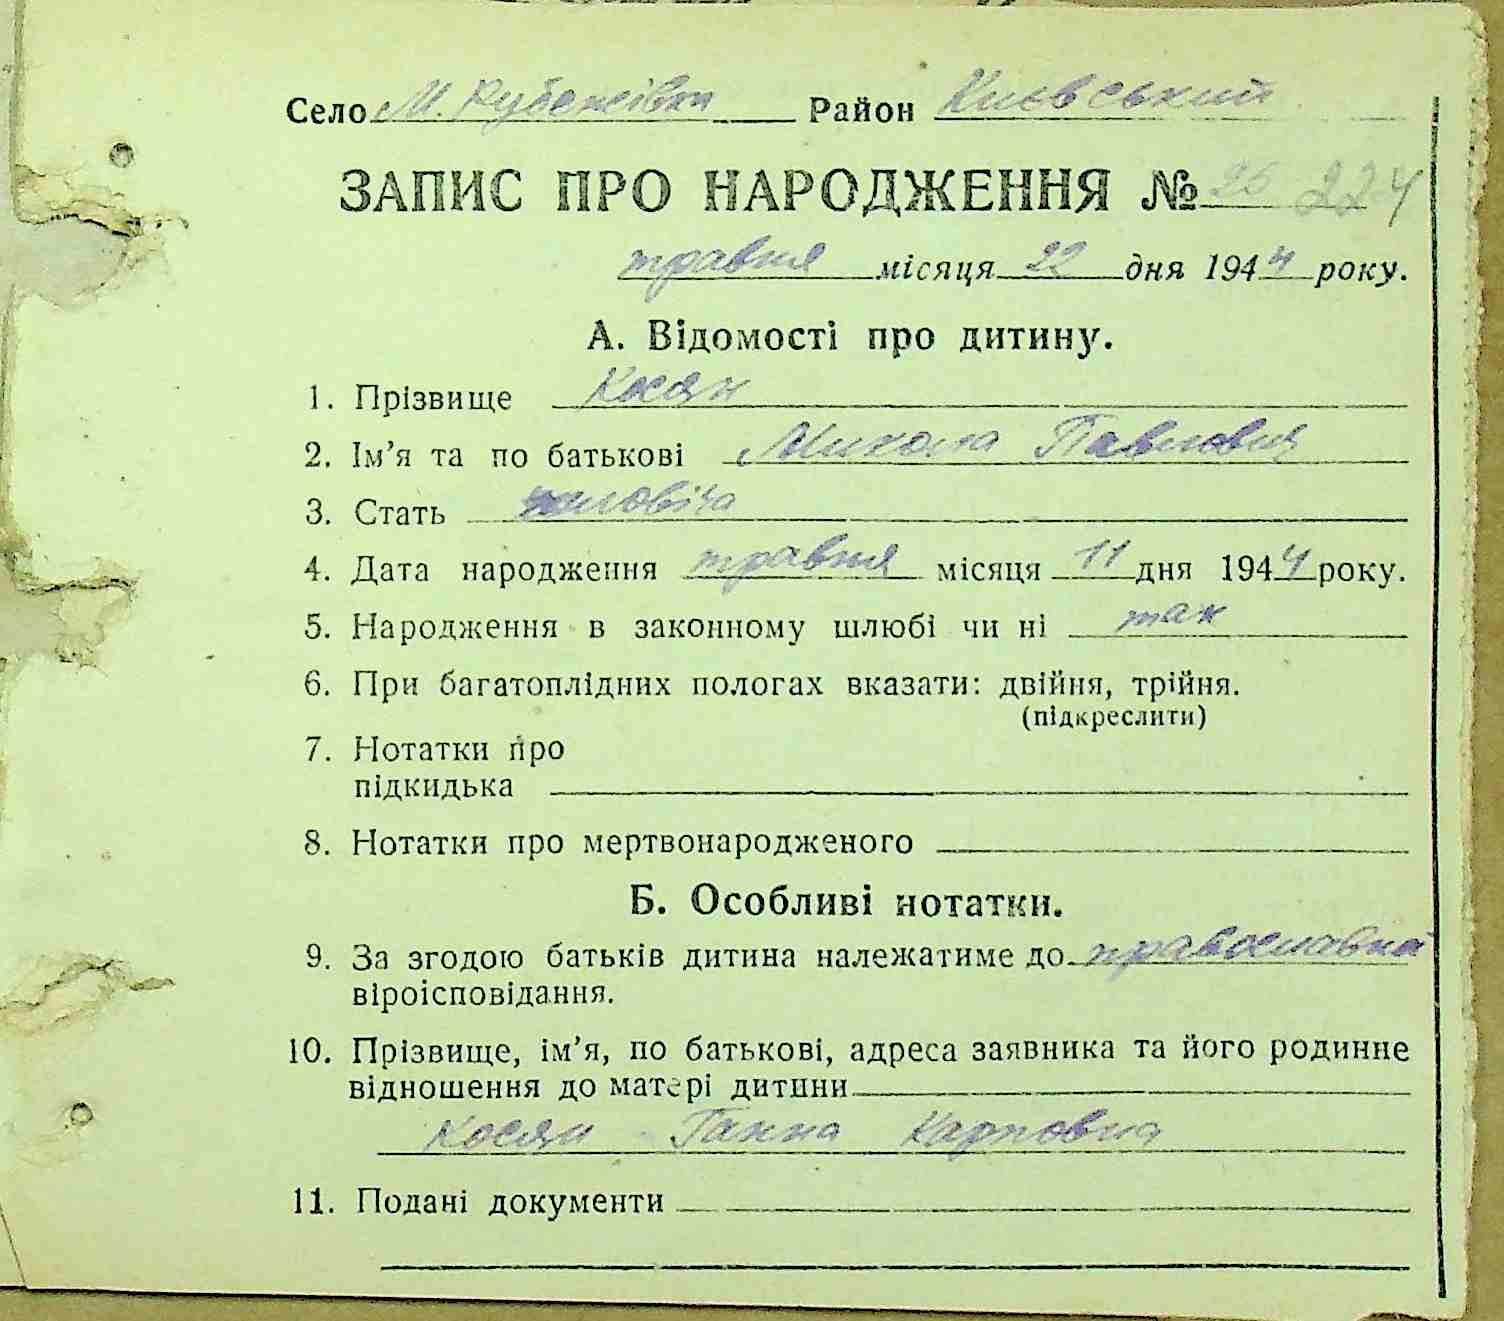 Село М. Рубежівка Район Києвський
ЗАПИС ПРО НАРОДЖЕННЯ № 26 224
травня місяця 22 дня 1944 року.
А. Відомості про дитину.
1. Прізвище Косян
2. Ім'я та по батькові Микола Павлович
3. Стать чоловіча
4. Дата народження травня місяця 11 дня 1944 року.
5. Народження в законному шлюбі чи ні так
6. При багатоплідних пологах вказати: двійня, трійня.
(підкреслити)
7. Нотатки про
підкидька
8. Нотатки про мертвонародженого
Б. Особливі нотатки.
9. За згодою батьків дитина належатиме до православної
віроісповідання.
10. Прізвище, ім'я, по батькові, адреса заявника та його родинне
відношення до матері дитини
Косян Ганна Карповна
11. Подані документи